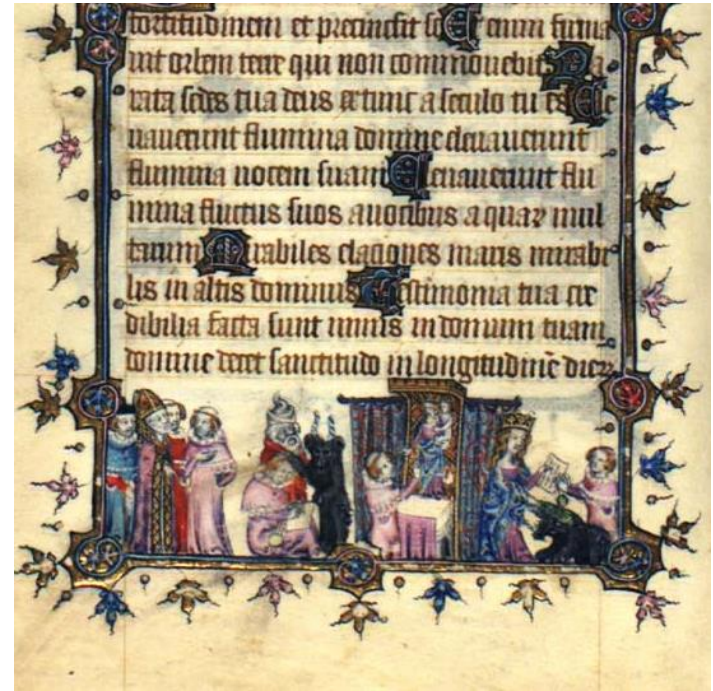 fortitudinem et precinxit se Et enim firma
uit orbem terre qui non commouebit Pa
rata sedes tua deus ex tunc a seculo tu es Ele
uauerunt flumina domine eleuauerunt
flumina uocem suam Eleuauerunt flu
mina fluctus suos a uocibus aquarꝝ mul
tarum Mirabiles elationes maris mirabi
lis in altis dominus Testimonia tua cre
dibilia facta sunt nimis in domum tuam
domine decet sanctitudo in longitudinē dierꝝ